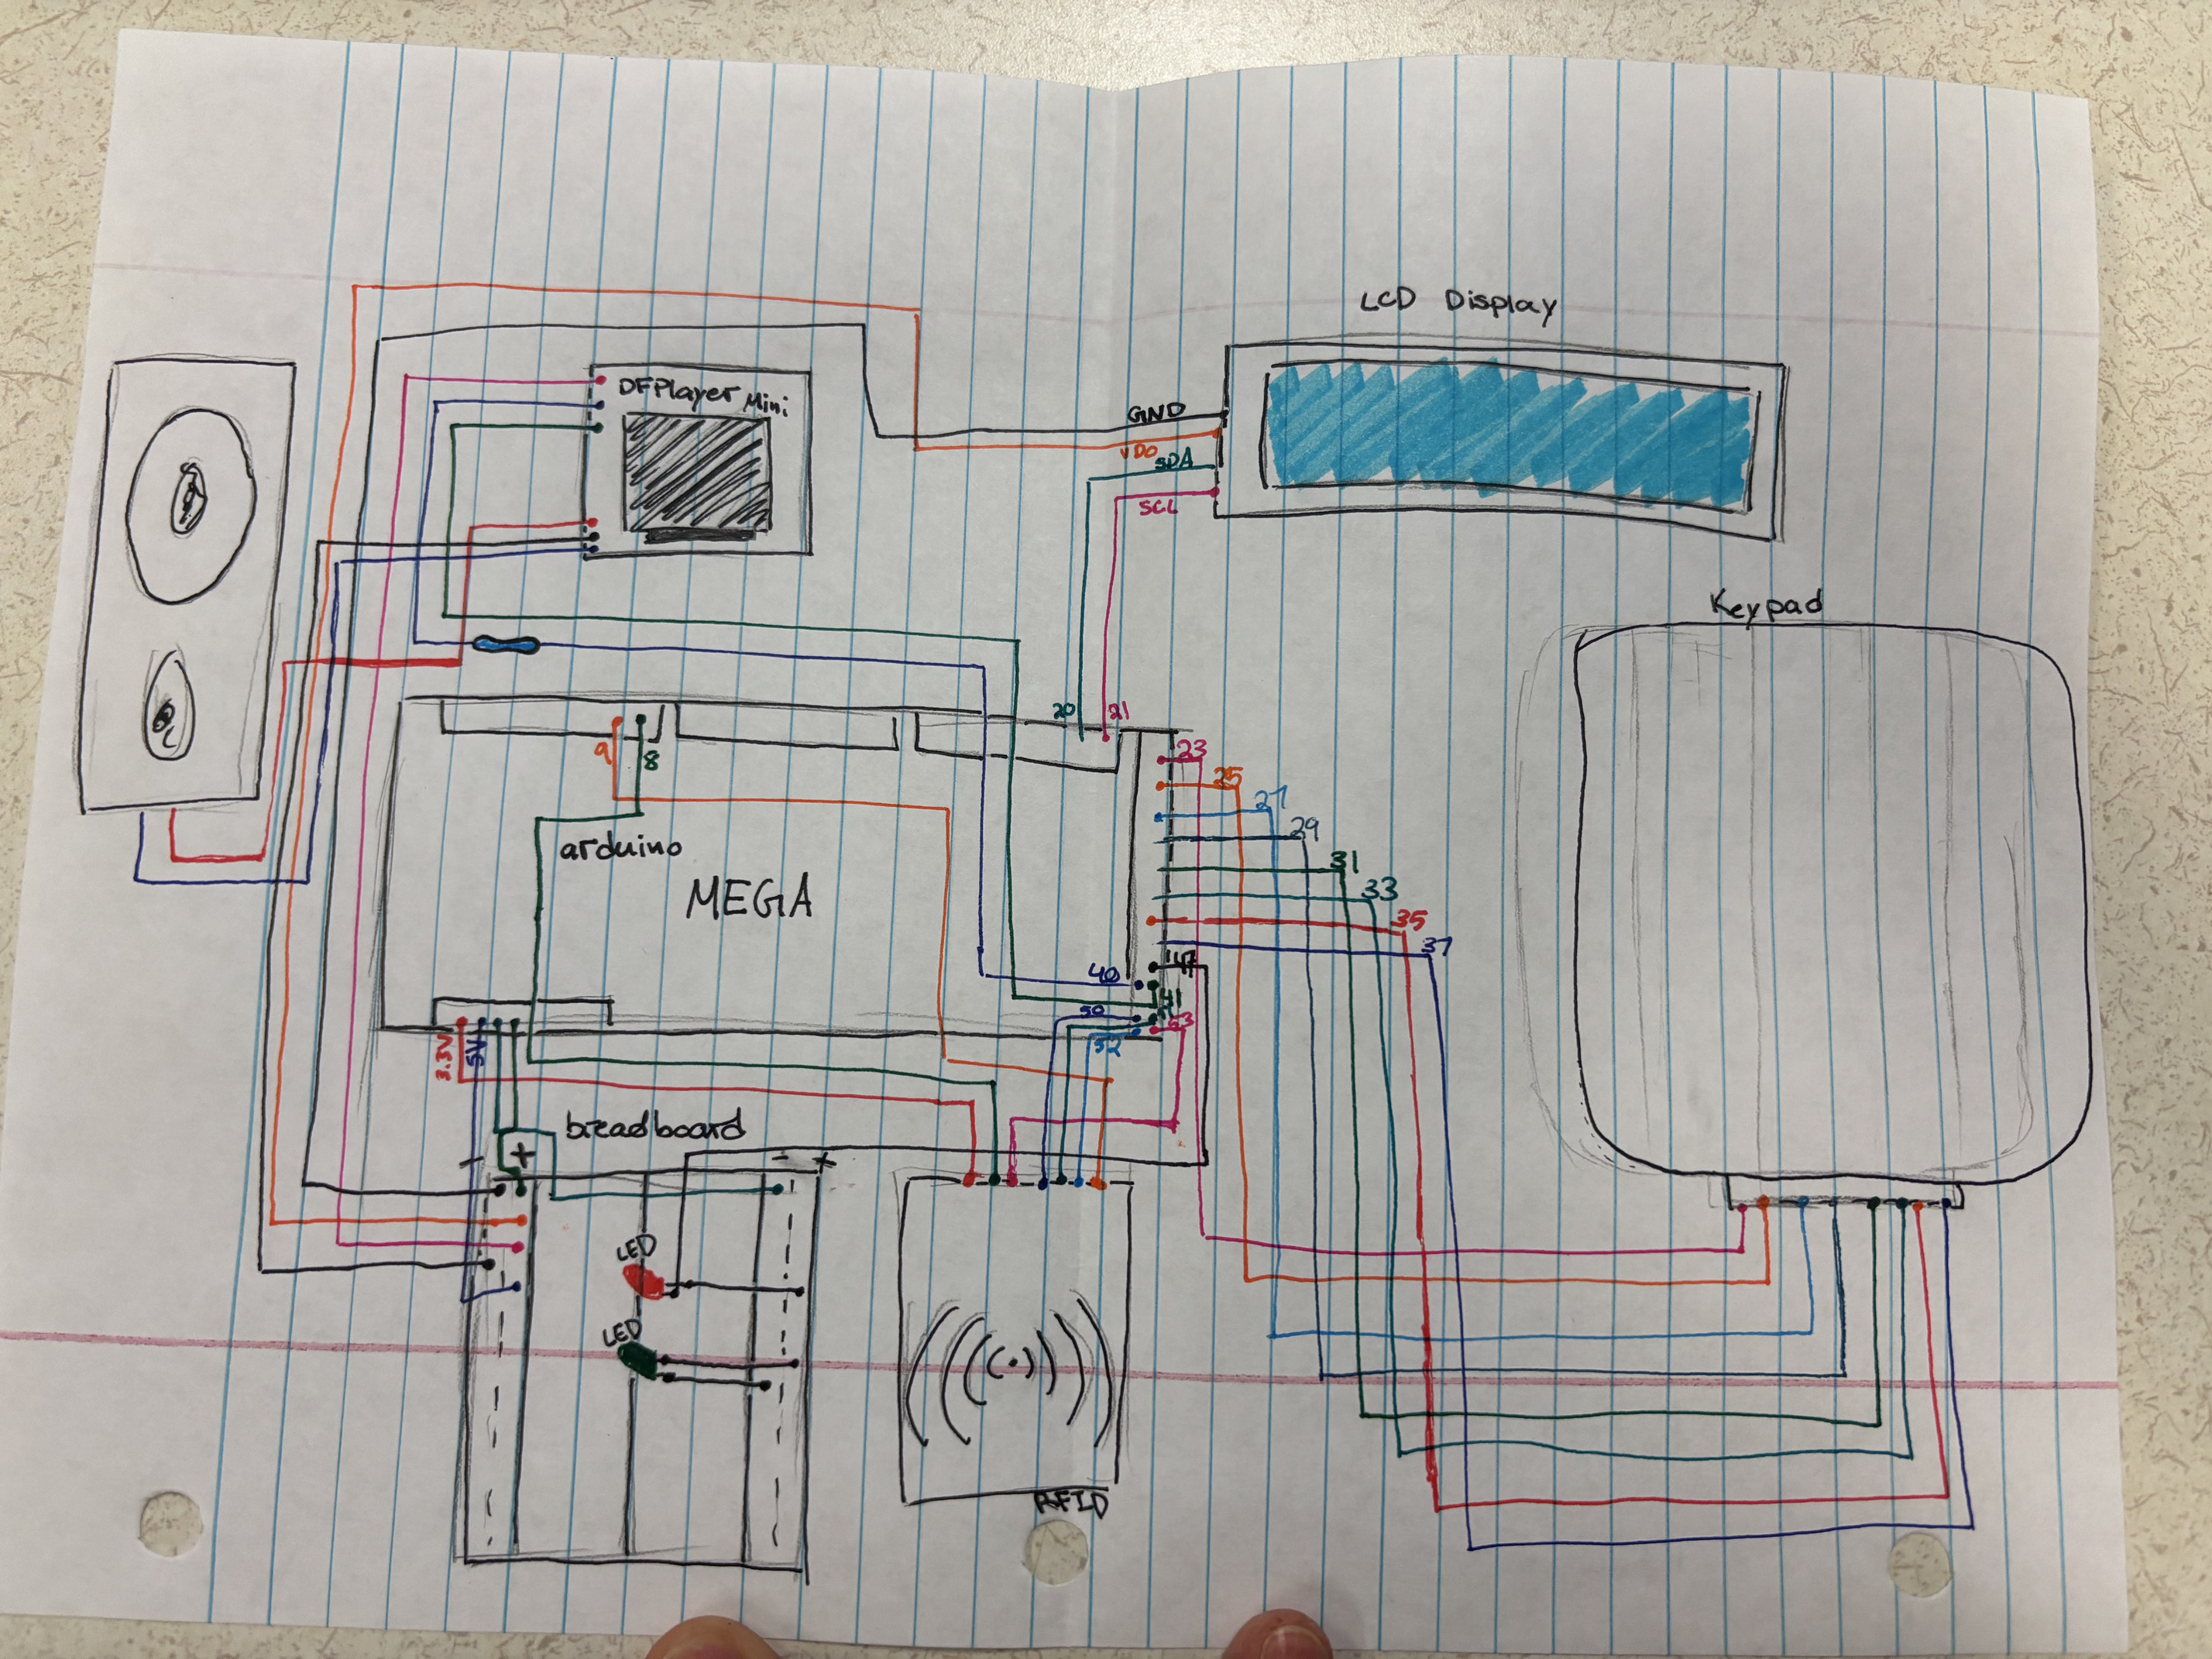 LCD Display
DFPlayer Mini
GND
VDO
SDA
SCL
Keypad
20
21
9
8
23
25
27
29
31
33
35
37
arduino
MEGA
47
40
41
50
53
52
3.3V
5V
breadboard
- +
- +
LED
LED
RFID